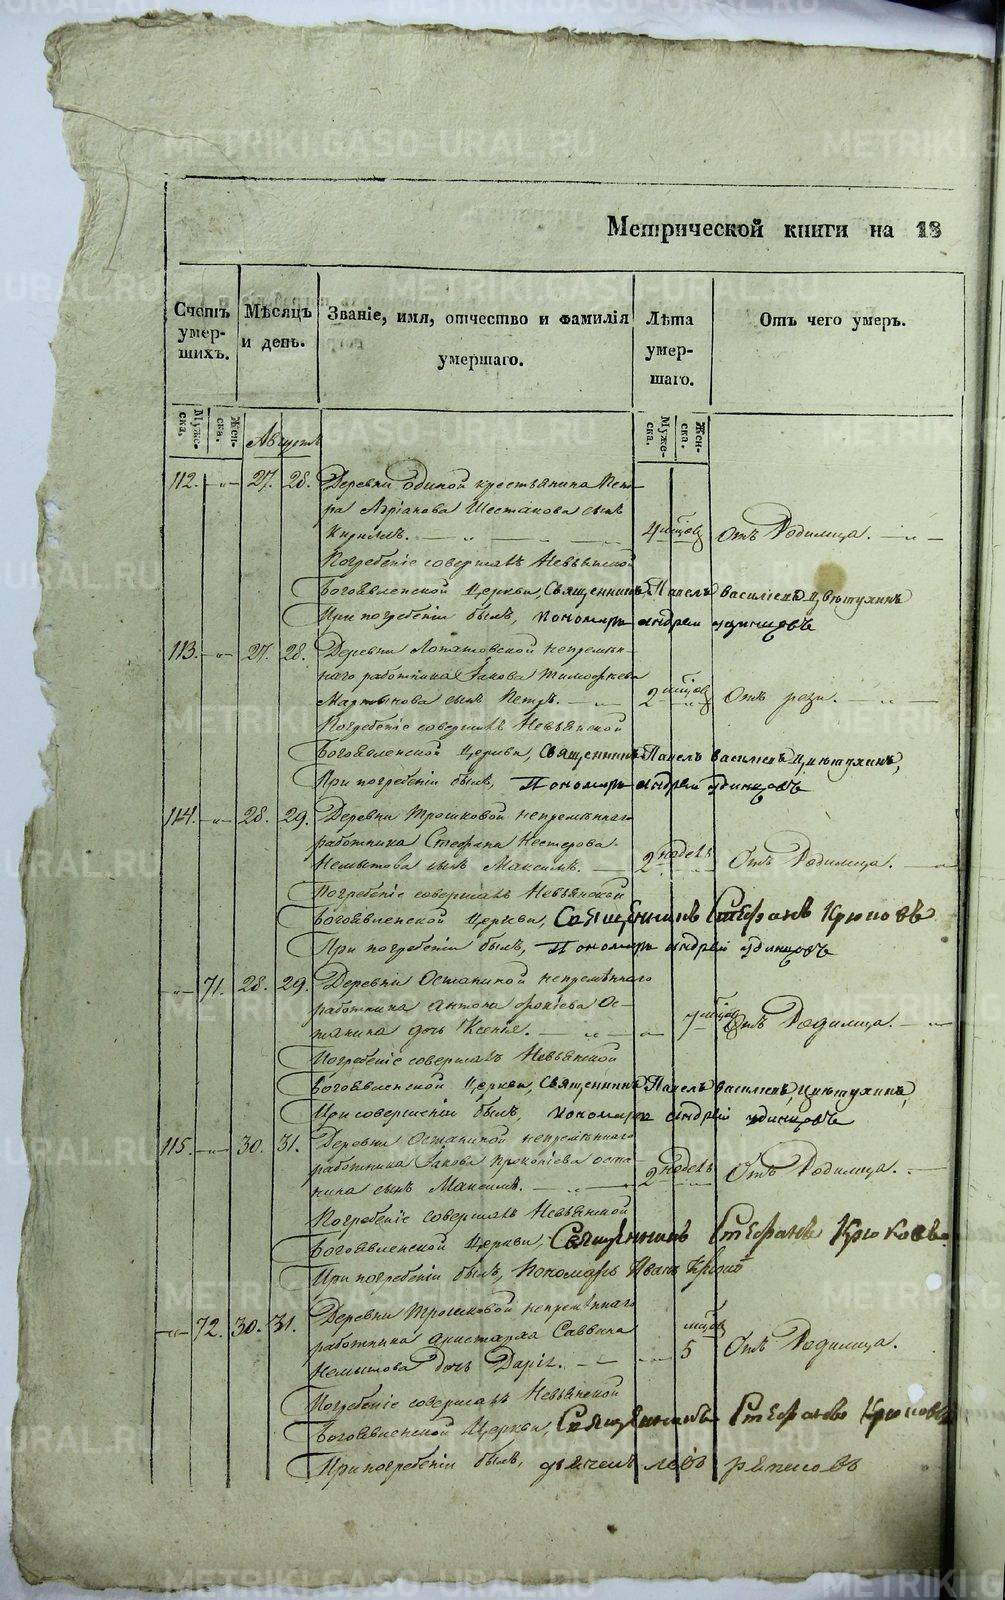 METRIKI.GASO-URAL.RU
Метрической книги на 18
Счетъ умершихъ.
Мѣсяцъ и день.
Званіе, имя, отчество и фамилія умершаго.
Лѣта умершаго.
Отъ чего умеръ.
Мужеска.
Женска.
Мужеска.
Женска.
Августъ
112. -„- 27. 28. Деревни Одиной крестьянина Пет-
ра Адріанова Шестакова сынъ
Кириллъ. 4 мѣсяцовъ Отъ Родимца.
Погребеніе совершалъ Невьянской
Богоявленской Церкви, Священникъ Павелъ Василіевъ Цвѣтухинъ
При погребеніи былъ, пономарь Андрей Удинцовъ
113. -„- 27. 28. Деревни Лопатовской непремѣн-
наго работника Іакова Тимофеева
Мартынова сынъ Петръ. 2 Отъ рези.
Погребеніе совершалъ Невьянской
Богоявленской Церкви, Священникъ Павелъ Василіевъ Цвѣтухинъ,
При погребеніи былъ, Пономарь Андрей Удинцовъ
114. -„- 28. 29. Деревни Трошковой непремѣннаго
работника Стефана Нестерова
Немытова сынъ Максимъ. 2 недель Отъ Родимца.
Погребеніе совершалъ Невьянской
Богоявленской Церкви, Священникъ Стефанъ Крюковъ
При погребеніи былъ, Пономарь Андрей Удинцовъ
-„- 71. 28. 29. Деревни Останиной непремѣннаго
работника Антона Фокіева Ос-
танина дочь Ксенія. 7 Отъ Родимца.
Погребеніе совершалъ Невьянской
Богоявленской Церкви, Священникъ Павелъ Василіевъ Цвѣтухинъ,
При совершеніи былъ, пономарь Андрей Удинцовъ
115. -„- 30. 31. Деревни Останиной непремѣннаго
работника Іакова Прокопіева Оста-
нина сынъ Максимъ. 2 недель Отъ Родимца.
Погребеніе совершалъ Невьянской
Богоявленской Церкви, Священникъ Стефанъ Крюковъ
При погребеніи былъ, Пономарь Иванъ
-„- 72. 30. 31. Деревни Трошковой непремѣннаго
работника Аристарха Саввина
Немытова дочь Дарія. 5 Отъ Родимца.
Погребеніе совершалъ Невьянской
Богоявленской Церкви, Священникъ Стефанъ Крюковъ
При погребеніи былъ, дьячекъ Левъ